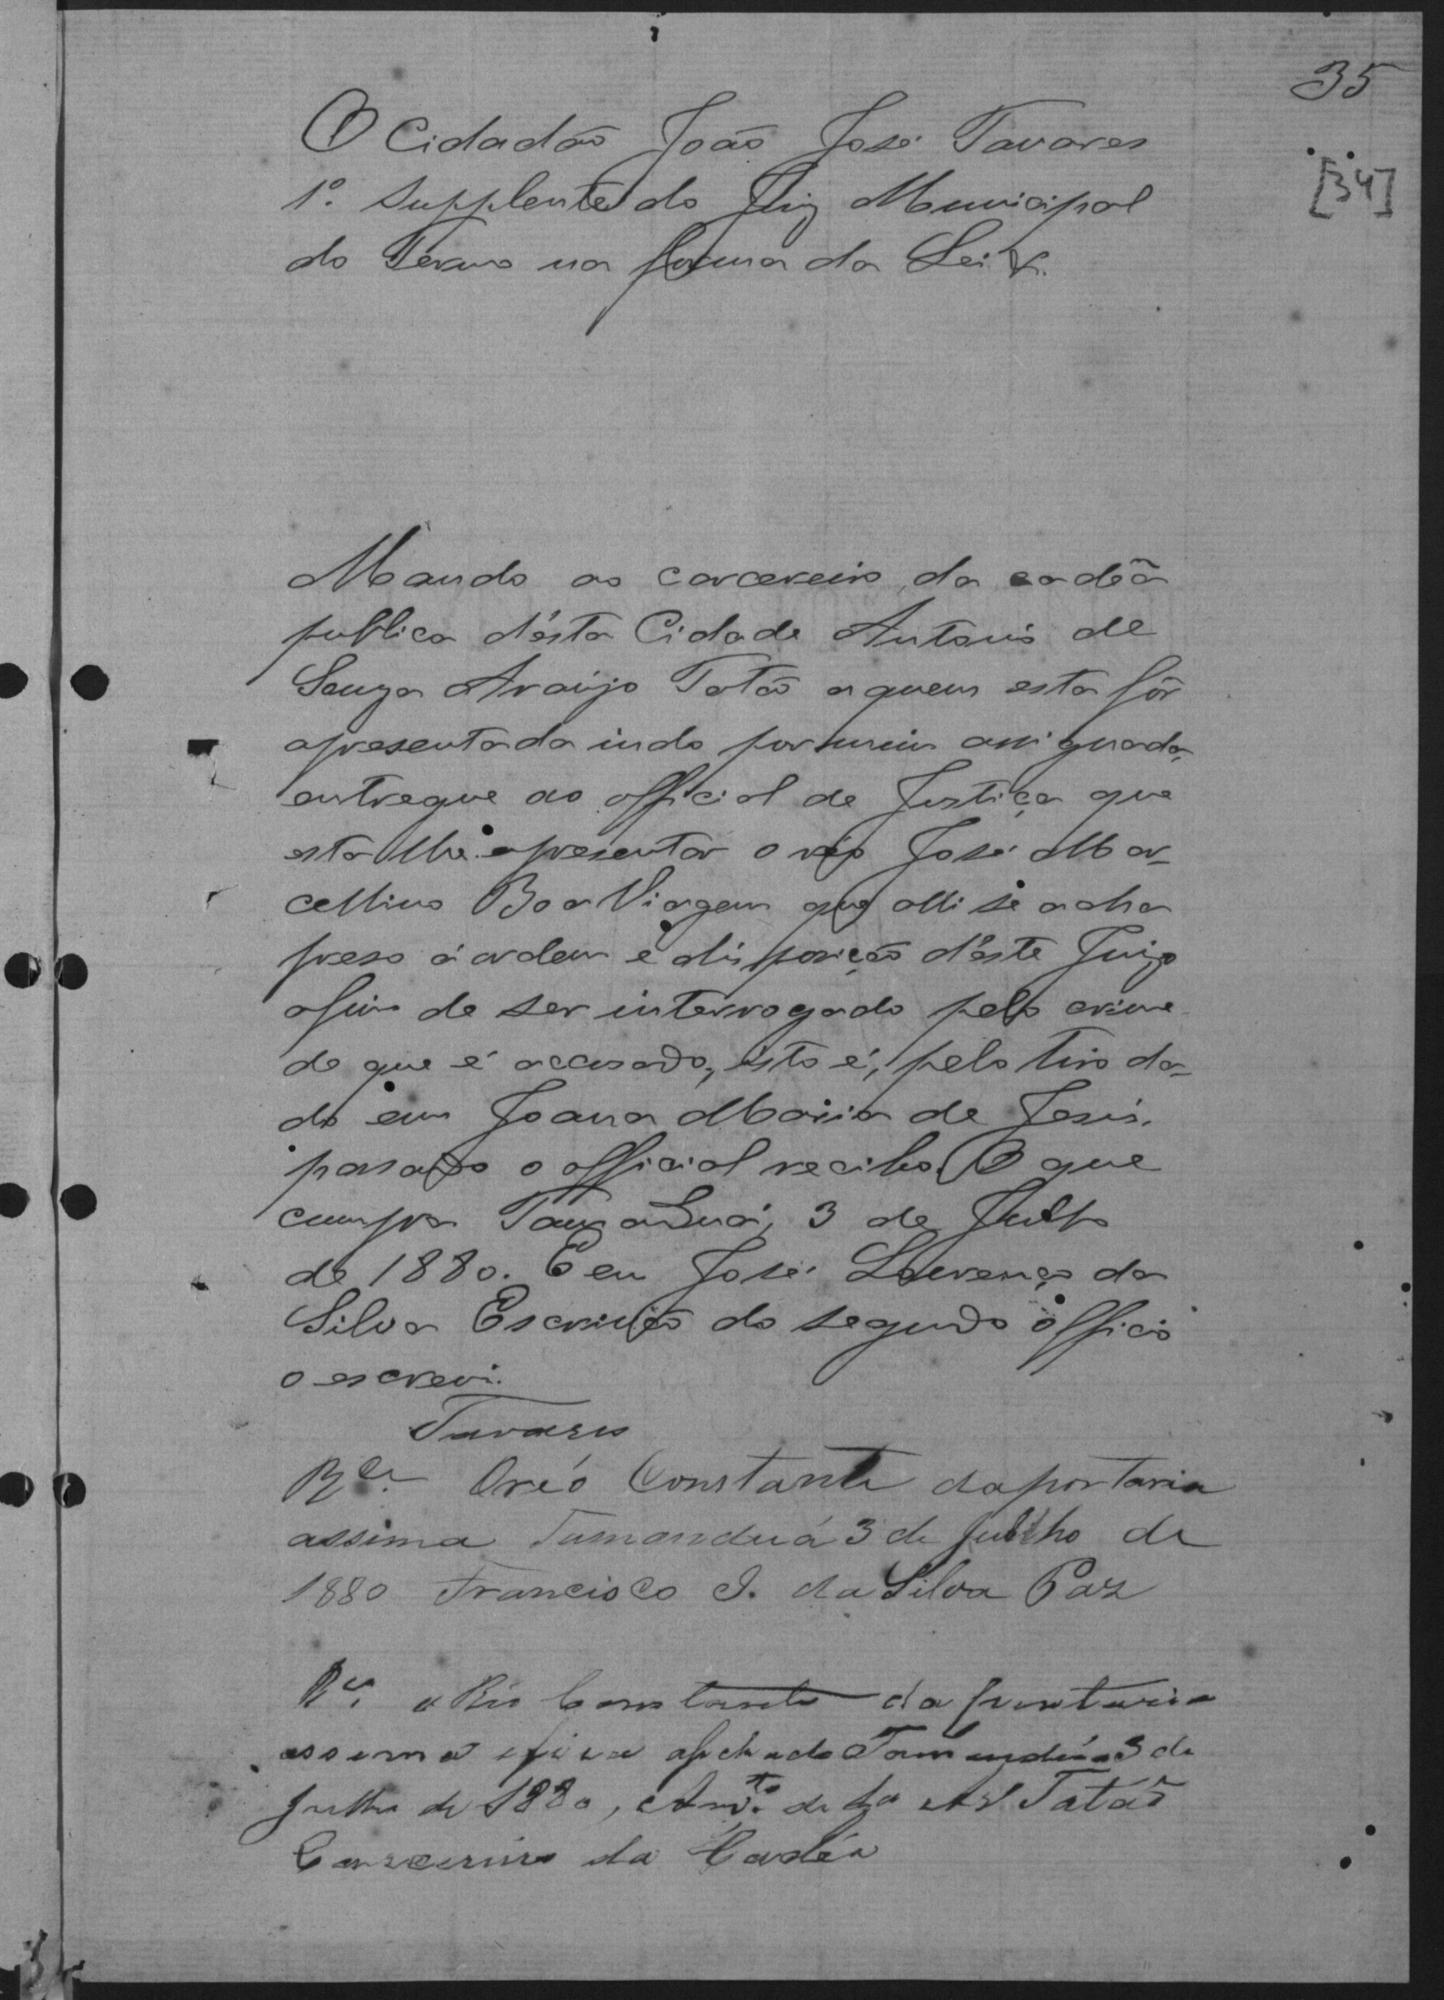 35
[34]
O Cidadão João José Tavares
1º. Supplente do Juiz Municipal
do Termo na forma da Lei &.
Mando ao carcereiro da cadêa
publica d'ésta Cidade Antonio de
Souza Araújo Tatão a quem esta fôr
apresentada indo por mim assignada,
entregue ao official de Justiça que
esta lhe apresentar o réo José Mar-
cellino Boa Viagem que alli se acha
preso á ordem e disposição d'éste Juizo
afim de ser interrogado pelo crime
de que é accusado, isto é, pelo tiro da-
do em Joana Maria de Jesus,
passado o official recibo. O que
cumpra Tamanduá, 3 de Julho
de 1880. E eu José Lourenço da
Silva Escrivão do segundo officio
o escrevi.
Tavares
Rce. Oréo Constante daportaria
assima Tamanduá 3 de Julho de
1880 Francisco J. da Silva Paz
Rce. o Réo Constante da purtaria
assima fica afichado Tamanduá 3 de
Julho de 1880, Antº. de Sª Arº Tatão
Carcereiro da Cadéa